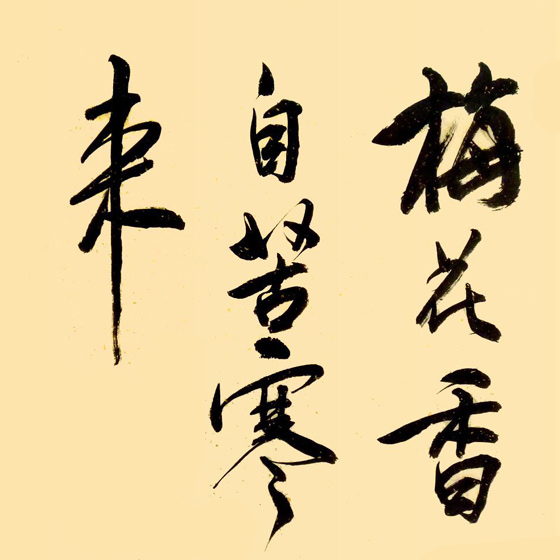 梅花香
自苦寒
來